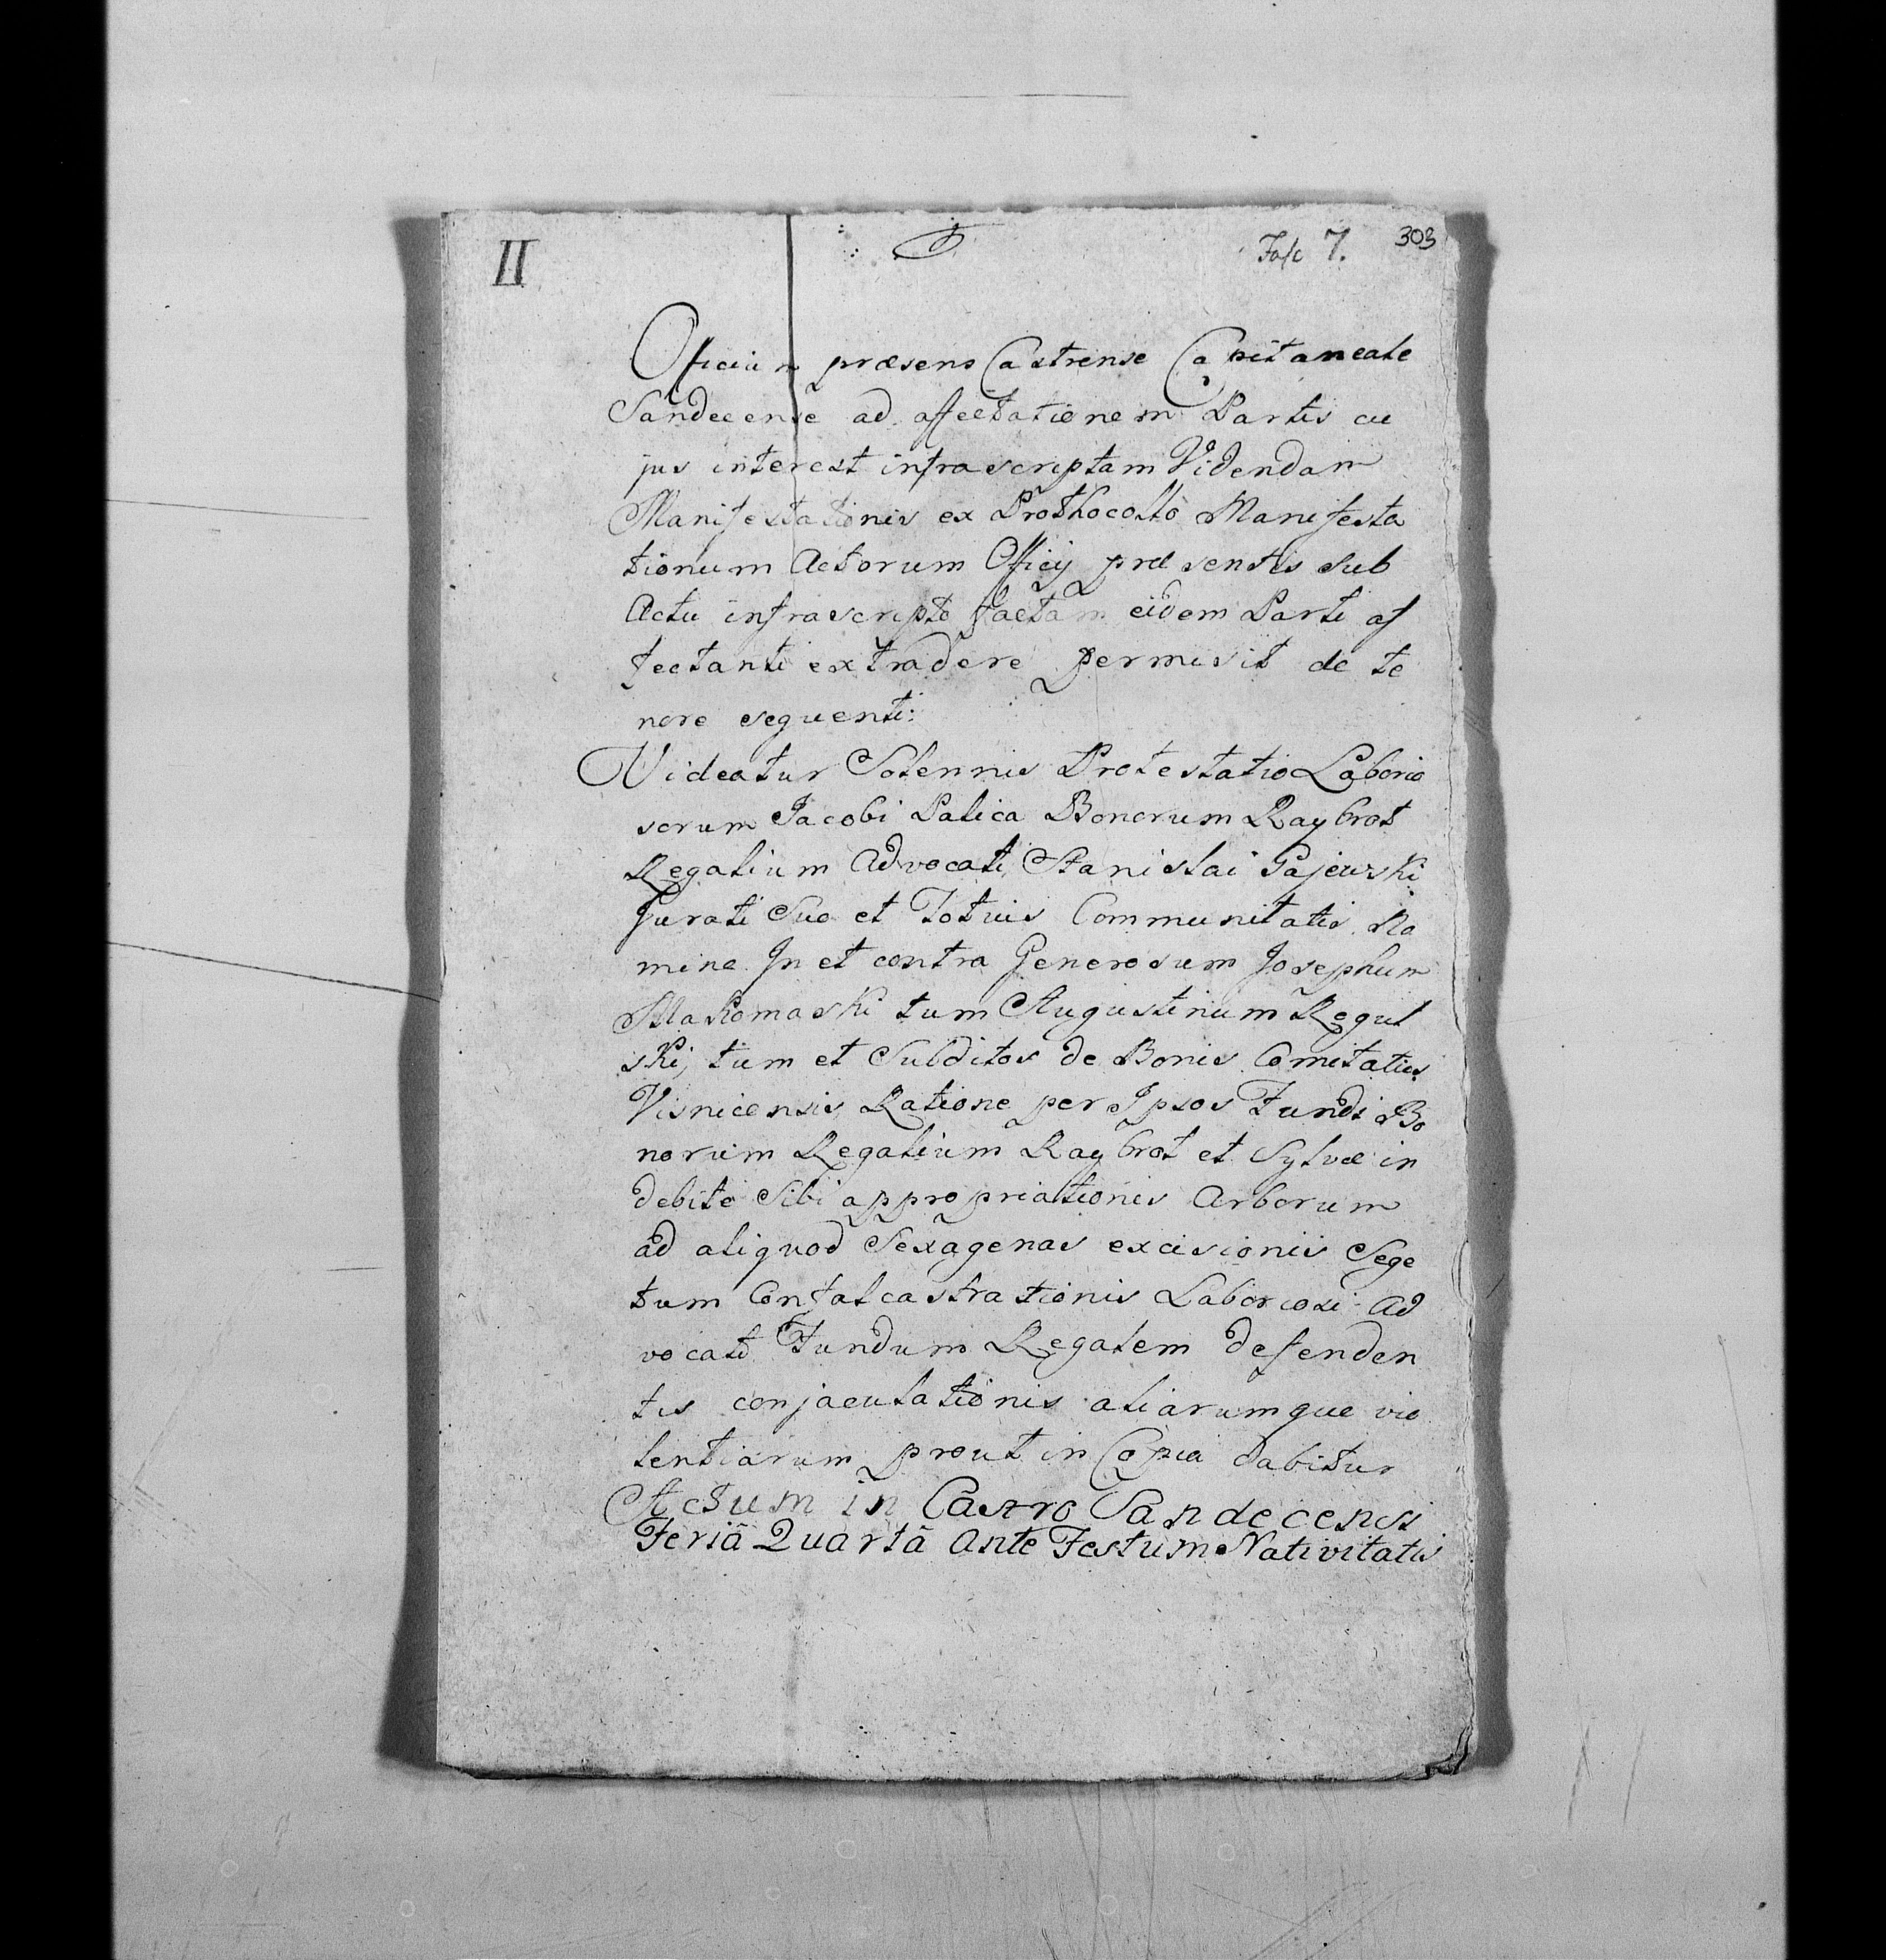 II
Fasc 7. 303
Officium præsens Castrense Capitaneale
Sandecense ad affectationem Partis cu
jus interest infrascriptam Videndam
Manifestationis ex Prothocollo Manifesta
tionum Actorum Officij præsentis sub
Actu infrascripto factam eidem Parti af
fectanti extradere permisit de te
nore sequenti:
Videatur Solennis Protestatio Laborio
sorum Jacobi Palica Bonorum Raybrot
Regalium Advocati, Stanislai Gajewski
Jurati Suo et Totius Communitatis No
mine In et contra Generosum Josephum
Makomaski tum Augustinum Regul
ski, tum et Subditos de Bonis Comitatus
Visnicensis Ratione per Ipsos Fundi Bo
norum Regalium Raybrot et Sylvæ in
debite Sibi appropriationis Arborum
ad aliquod Sexagenas excisionis Sege
tum Confalcastrationis Laboriosi Ad
vocati Fundum Regalem defenden
tis conjaculationis aliarumque vio
lentiarum prout in Copia dabitur
Actum in Castro Sandecensi
Feriâ Quartâ Ante Festum Nativitatis